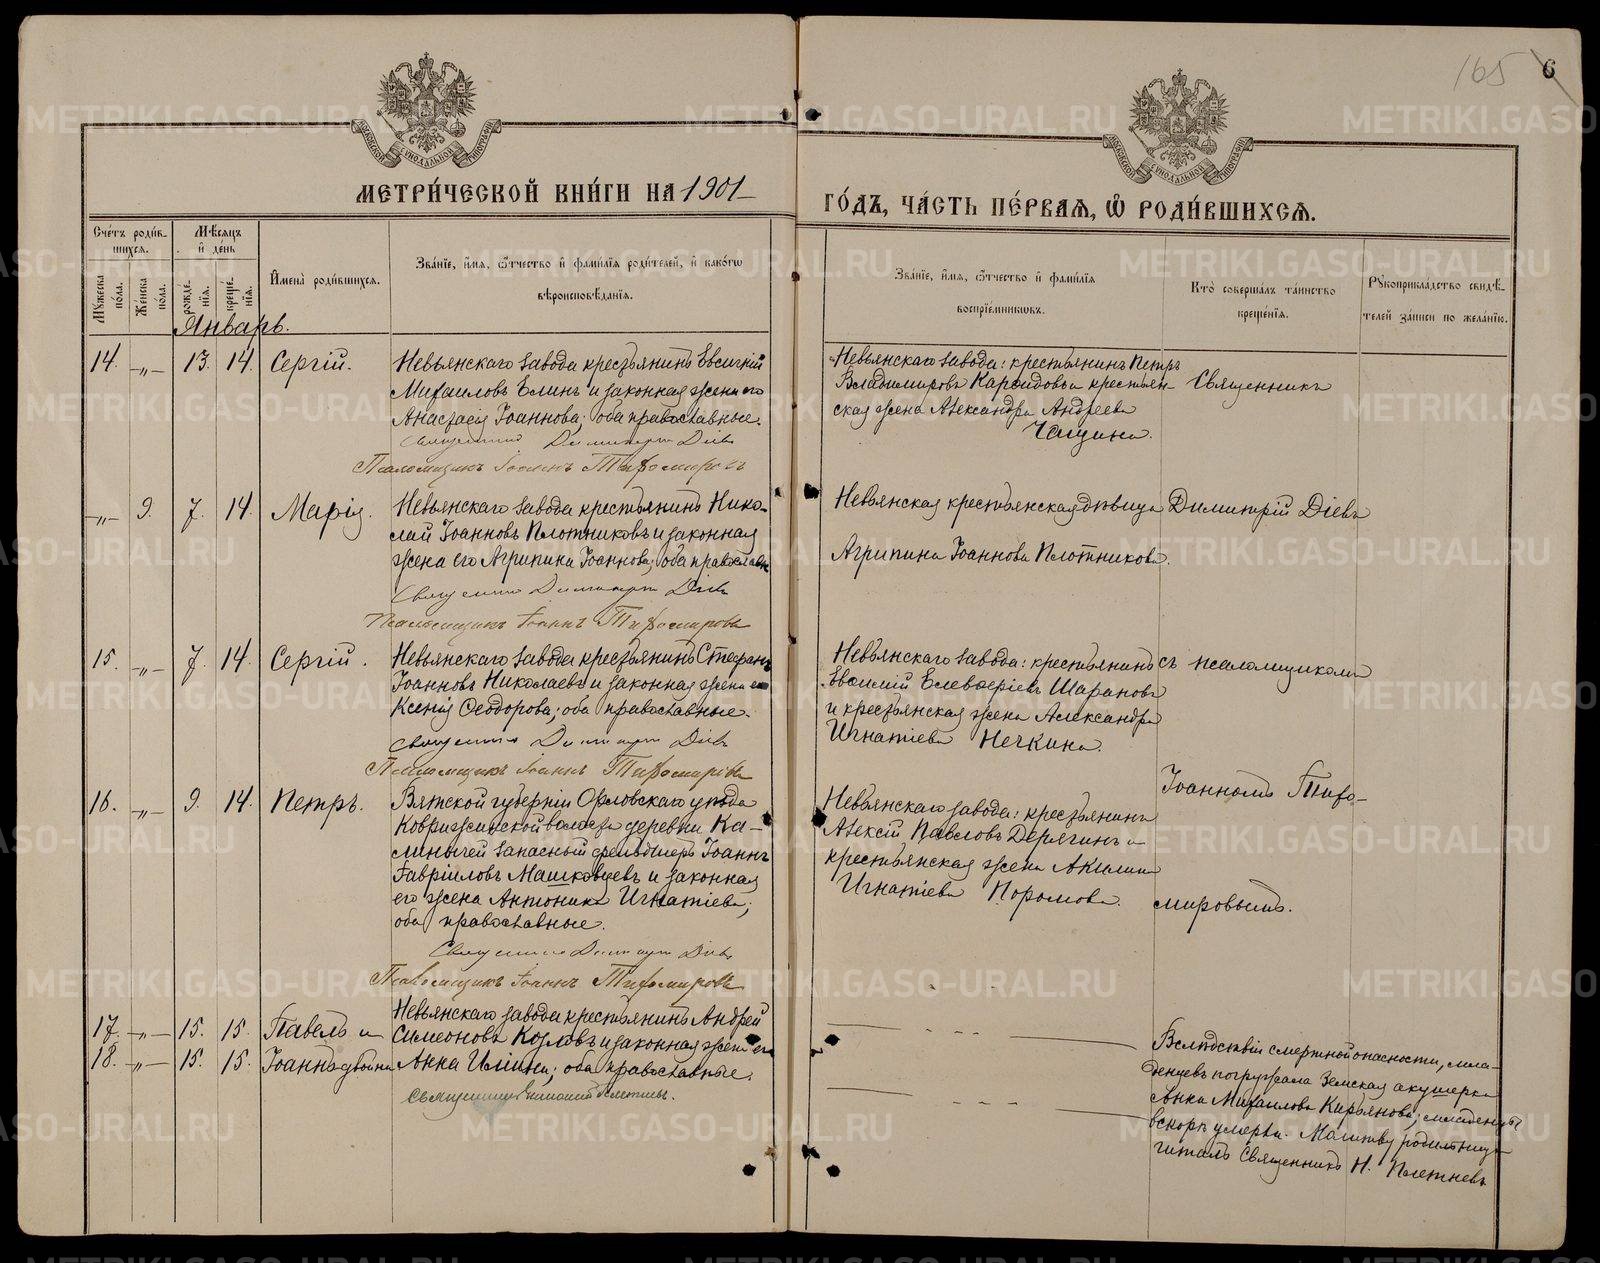 165 6
МЕТРИ́ЧЕСКОЙ КНИ́ГИ НА 1901
ГО́ДЪ, ЧА́СТЬ ПЕ́РВАЯ, Ѡ РОДИ́ВШИХСЯ.
Сче́тъ роди́в-
шихся.
Мꙋ́жеска по́ла.
Же́нска по́ла.
Мѣ́сяцъ
и де́нь
рожде́-
нія.
креще́-
нія.
Имена̀ роди́вшихся.
Зва́ніе, и́мя, ѻ́тчество и фами́лія роди́телей, и како́гѡ
вѣроисповѣ́данія.
Зва́ніе, и́мя, ѻ́тчество и фами́лія
воспріе́мниковъ.
Кто̀ соверша́лъ та́инство
креще́нія.
Рꙋкоприкла́дство свидѣ́-
телей за́писи по жела́нію.
Январь.
14. -"- 13. 14. Сергій.
Невьянскаго завода крестьянинъ Евсигній
Михаиловъ Елинъ и законная жена его
Анастасія Іоаннова; оба православные.
Священникъ Димитрій Діевъ
Псаломщикъ Іоаннъ Тихомировъ
Невьянскаго завода: крестьянинъ Петръ
Владимировъ и крестьян-
ская жена Александра Андреева
Чащина.
Священникъ
-"- 9. 7. 14. Марія.
Невьянскаго завода крестьянинъ Нико-
лай Іоанновъ Плотниковъ и законная
жена его Агрипина Іоаннова; оба православн
Священникъ Димитрій Діевъ
Псаломщикъ Іоаннъ Тихомировъ
Невьянская крестьянская дѣвица
Агрипина Іоаннова Плотникова.
Димитрій Діевъ
15. -"- 7. 14. Сергій.
Невьянскаго завода крестьянинъ Стефанъ
Іоанновъ Николаевъ и законная жена его
Ксенія Ѳеодорова; оба православные.
Священникъ Димитрій Діевъ
Псаломщикъ Іоаннъ Тихомировъ
Невьянскаго завода: крестьянинъ
Елевѳеріевъ Шарановъ
и крестьянская жена Александра
Игнатіева Нечкина.
съ псаломщикомъ
16. -"- 9. 14. Петръ.
Вятской губерніи Орловскаго уѣзда
волости деревни Ка-
запасный фельдшеръ Іоаннъ
Гавріиловъ Машковцевъ и законная
его жена Антонина Игнатіева;
оба православные.
Священникъ Димитрій Діевъ
Псаломщикъ Іоаннъ Тихомировъ
Невьянскаго завода: крестьянинъ
Алексій Павловъ Дерягинъ и
крестьянская жена Акилина
Игнатіева Поромова.
Іоанномъ Тихо-
мировымъ.
17. -"- 15. 15. Павелъ и
18. -"- 15. 15. Іоаннъ двойни
Невьянскаго завода крестьянинъ Андрей
Симеоновъ Козловъ и законная жена его
Анна Ильина; оба православные.
Священникъ Плетневъ.
Вслѣдствіи смертной опасности, мла-
денцевъ погружала Земская акушерка
Анна Михаилова Кирьянова; младенцы
вскорѣ умерли. Молитву родильницѣ
читалъ Священникъ Н. Плетневъ
METRIKI.GASO-URAL.RU